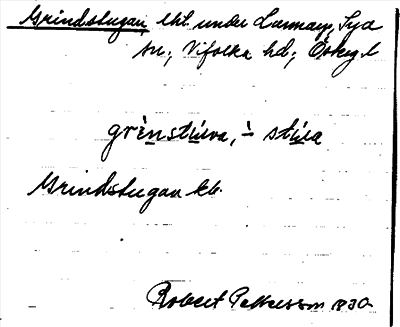 Grindstugan, lht. under Larmay, Sya
sn; Vifolka hd; Östergl
grinstuwa, i- stúwa
Grindstugan kb.
Robert Pettersson 1930